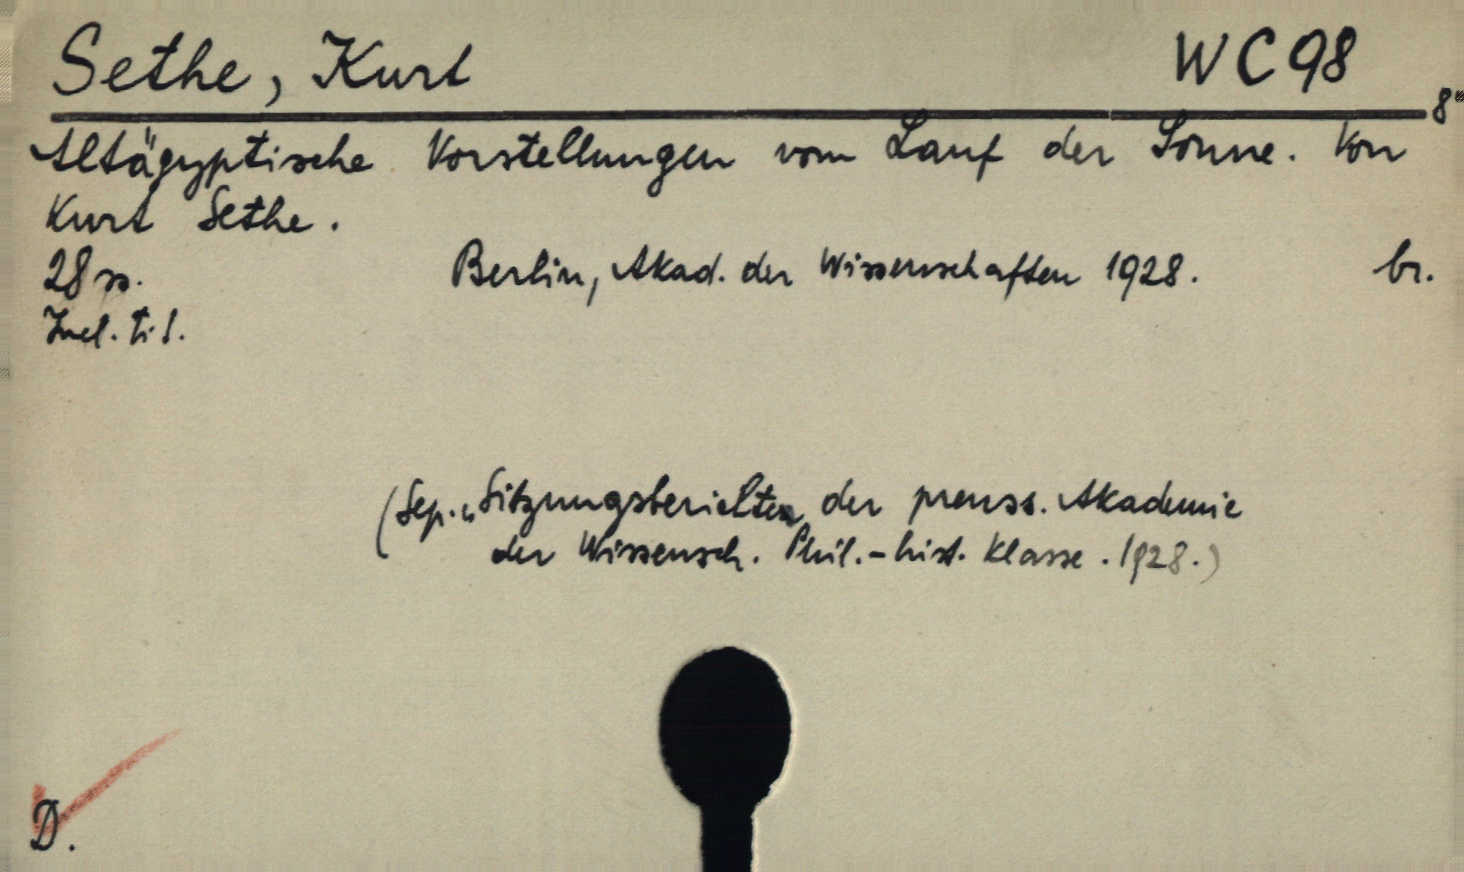 Sethe, Kurt WC98
8°
Altägyptische Vorstellungen vom Lauf der Sonne. Von
Kurt Sethe.
28 ss. Berlin, Akad. der Wissenschaften 1928. br.
Incl. tit.
(Sep. "Sitzungsberichten der preuss. Akademie
der Wissensch. Phil.-hist. Klasse. 1928.)
D.